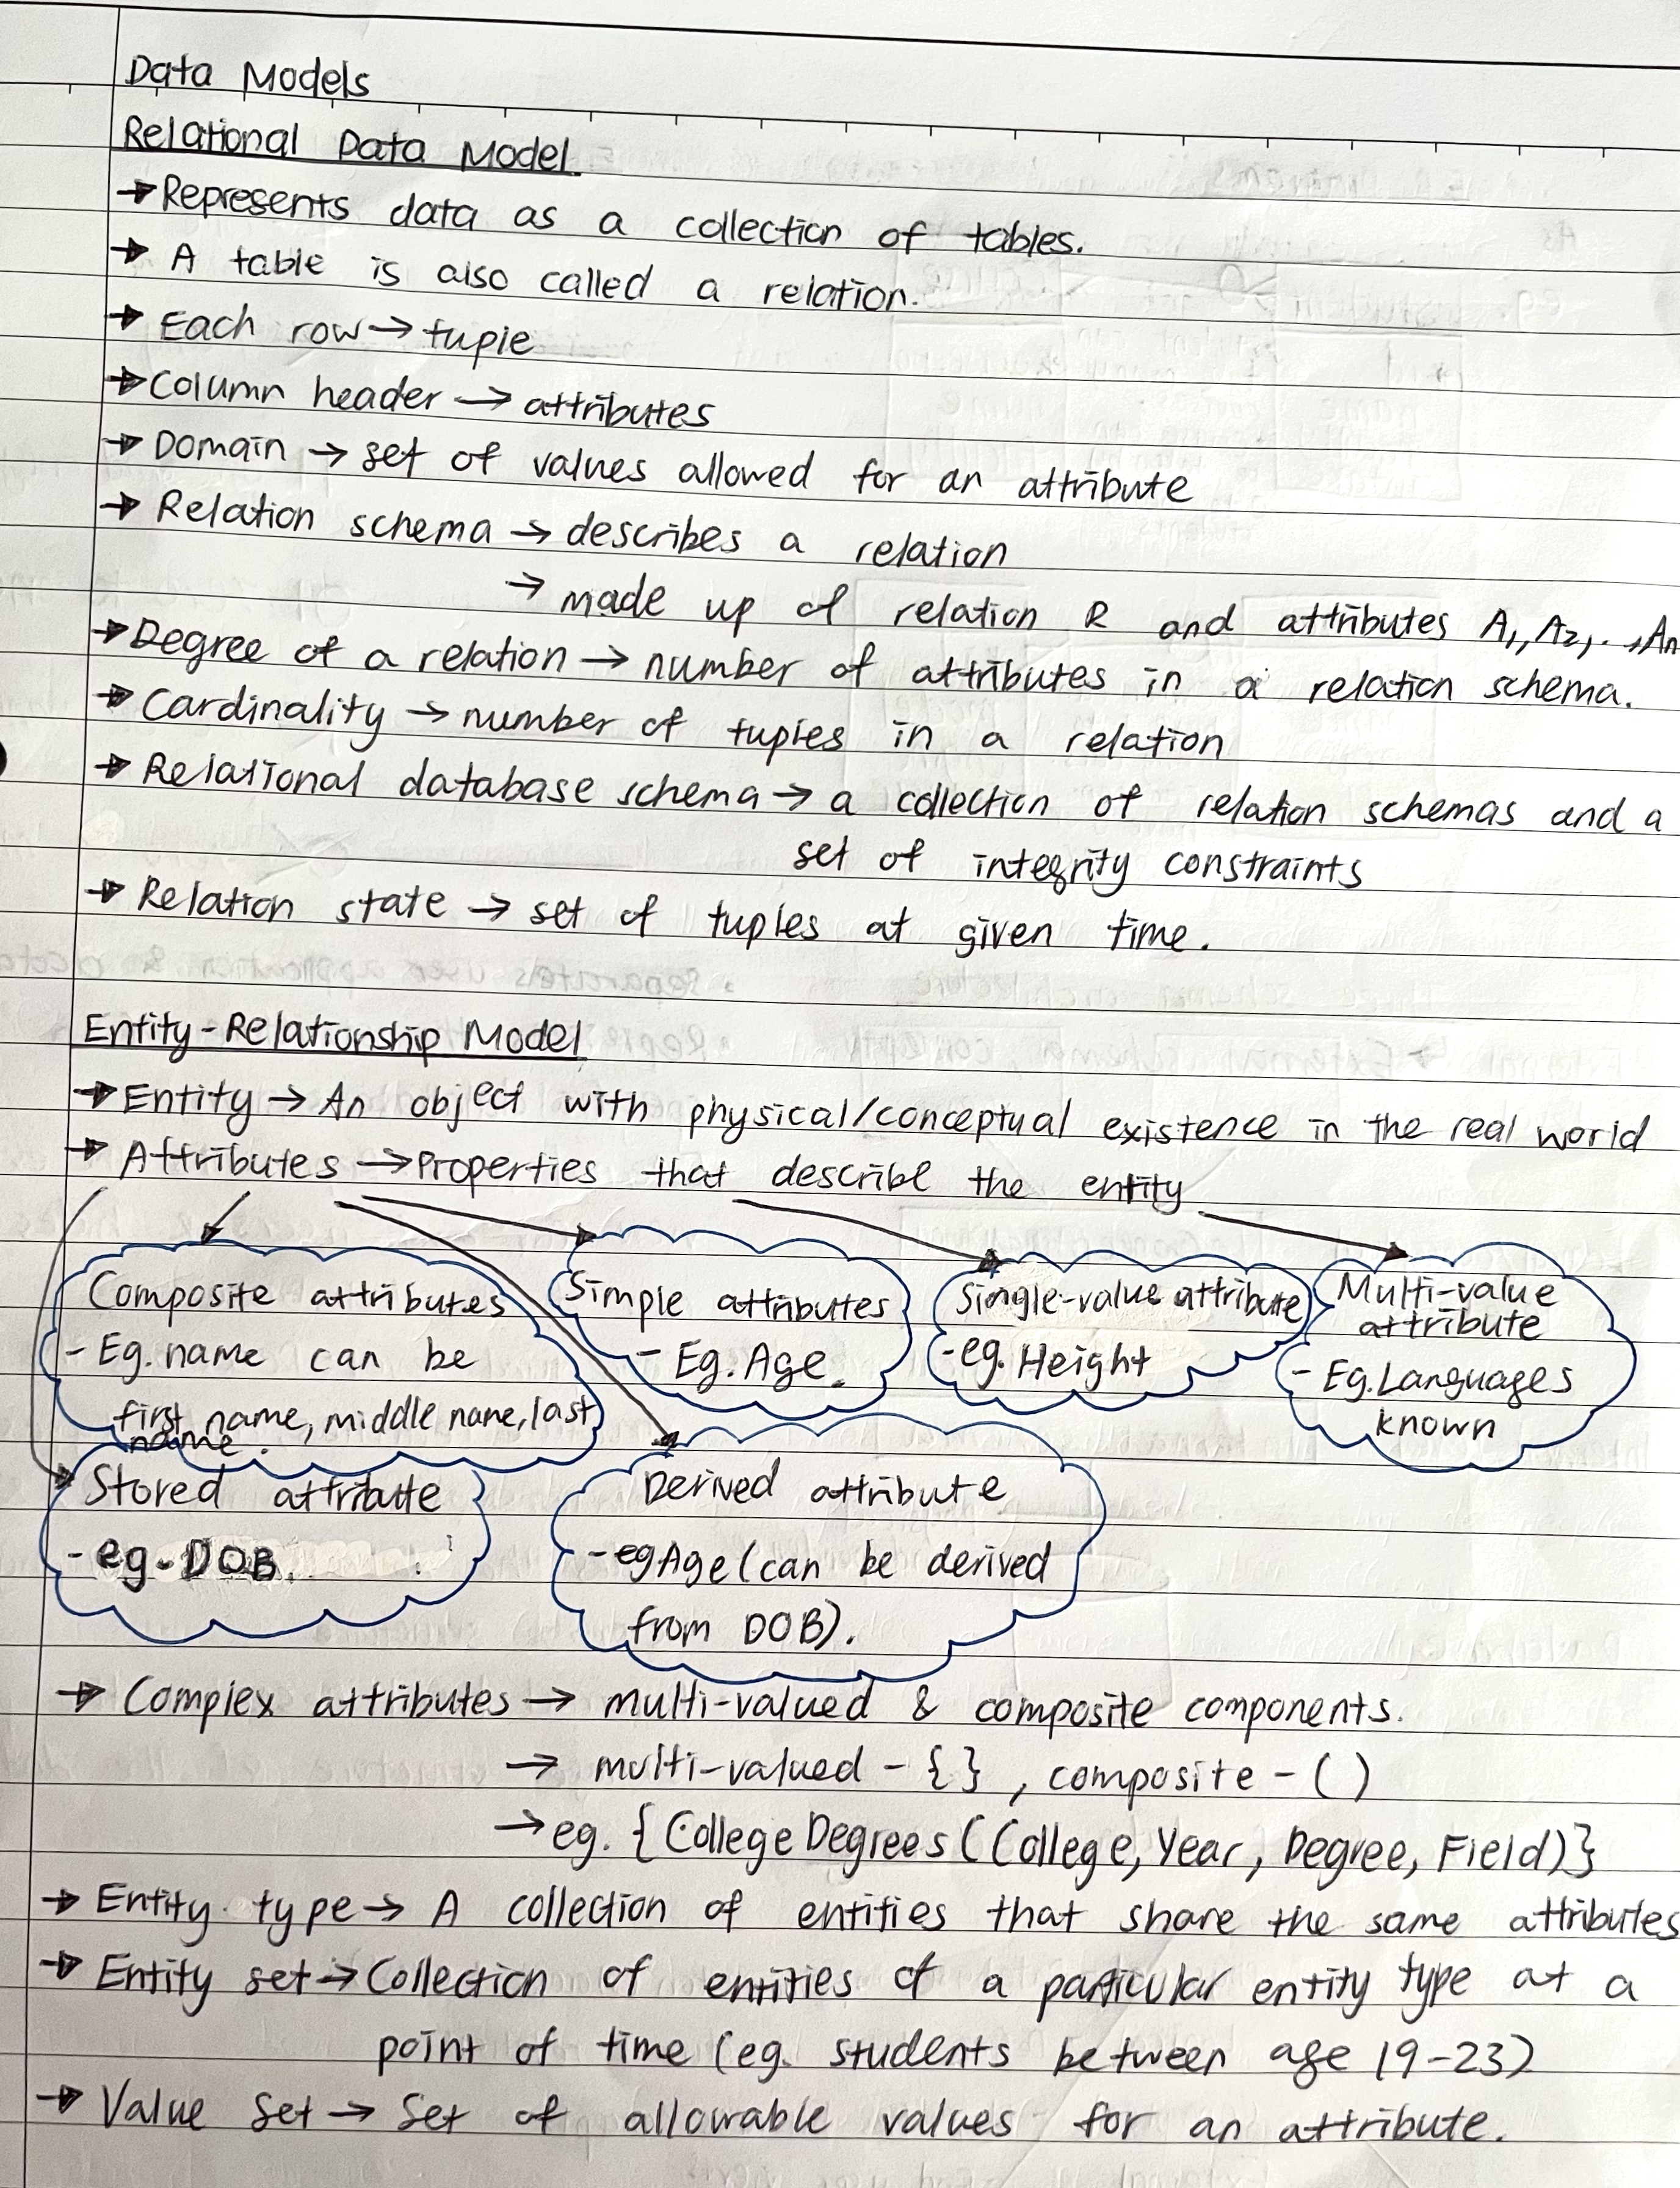 Data Models
Relational Data Model
→ Represents data as a collection of tables.
→ A table is also called a relation.
→ Each row → tuple
→ Column header → attributes
→ Domain → set of values allowed for an attribute
→ Relation schema → describes a relation
→ made up of relation R and attributes A1, A2, . ., An
→ Degree of a relation → number of attributes in a relation schema.
→ Cardinality → number of tuples in a relation
→ Relational database schema → a collection of relation schemas and a
set of integrity constraints
→ Relation state → set of tuples at given time.
Entity-Relationship Model
→ Entity → An object with physical/conceptual existence in the real world
→ Attributes → Properties that describe the entity
Composite attributes
- Eg. name can be
first name, middle name, last
name.
Simple attributes
- Eg. Age.
Single-value attribute
- eg. Height
Multi-value
attribute
- Eg. Languages
known
Stored attribute
- eg- DOB.
Derived attribute
- eg Age (can be derived
from DOB).
→ Complex attributes → multi-valued & composite components.
→ multi-valued - { } , composite - ( )
→ eg. { College Degrees (College, Year, Degree, Field) }
→ Entity type → A collection of entities that share the same attributes
→ Entity set → Collection of entities of a particular entity type at a
point of time (eg. students between age 19-23)
→ Value Set → Set of allowable values for an attribute.